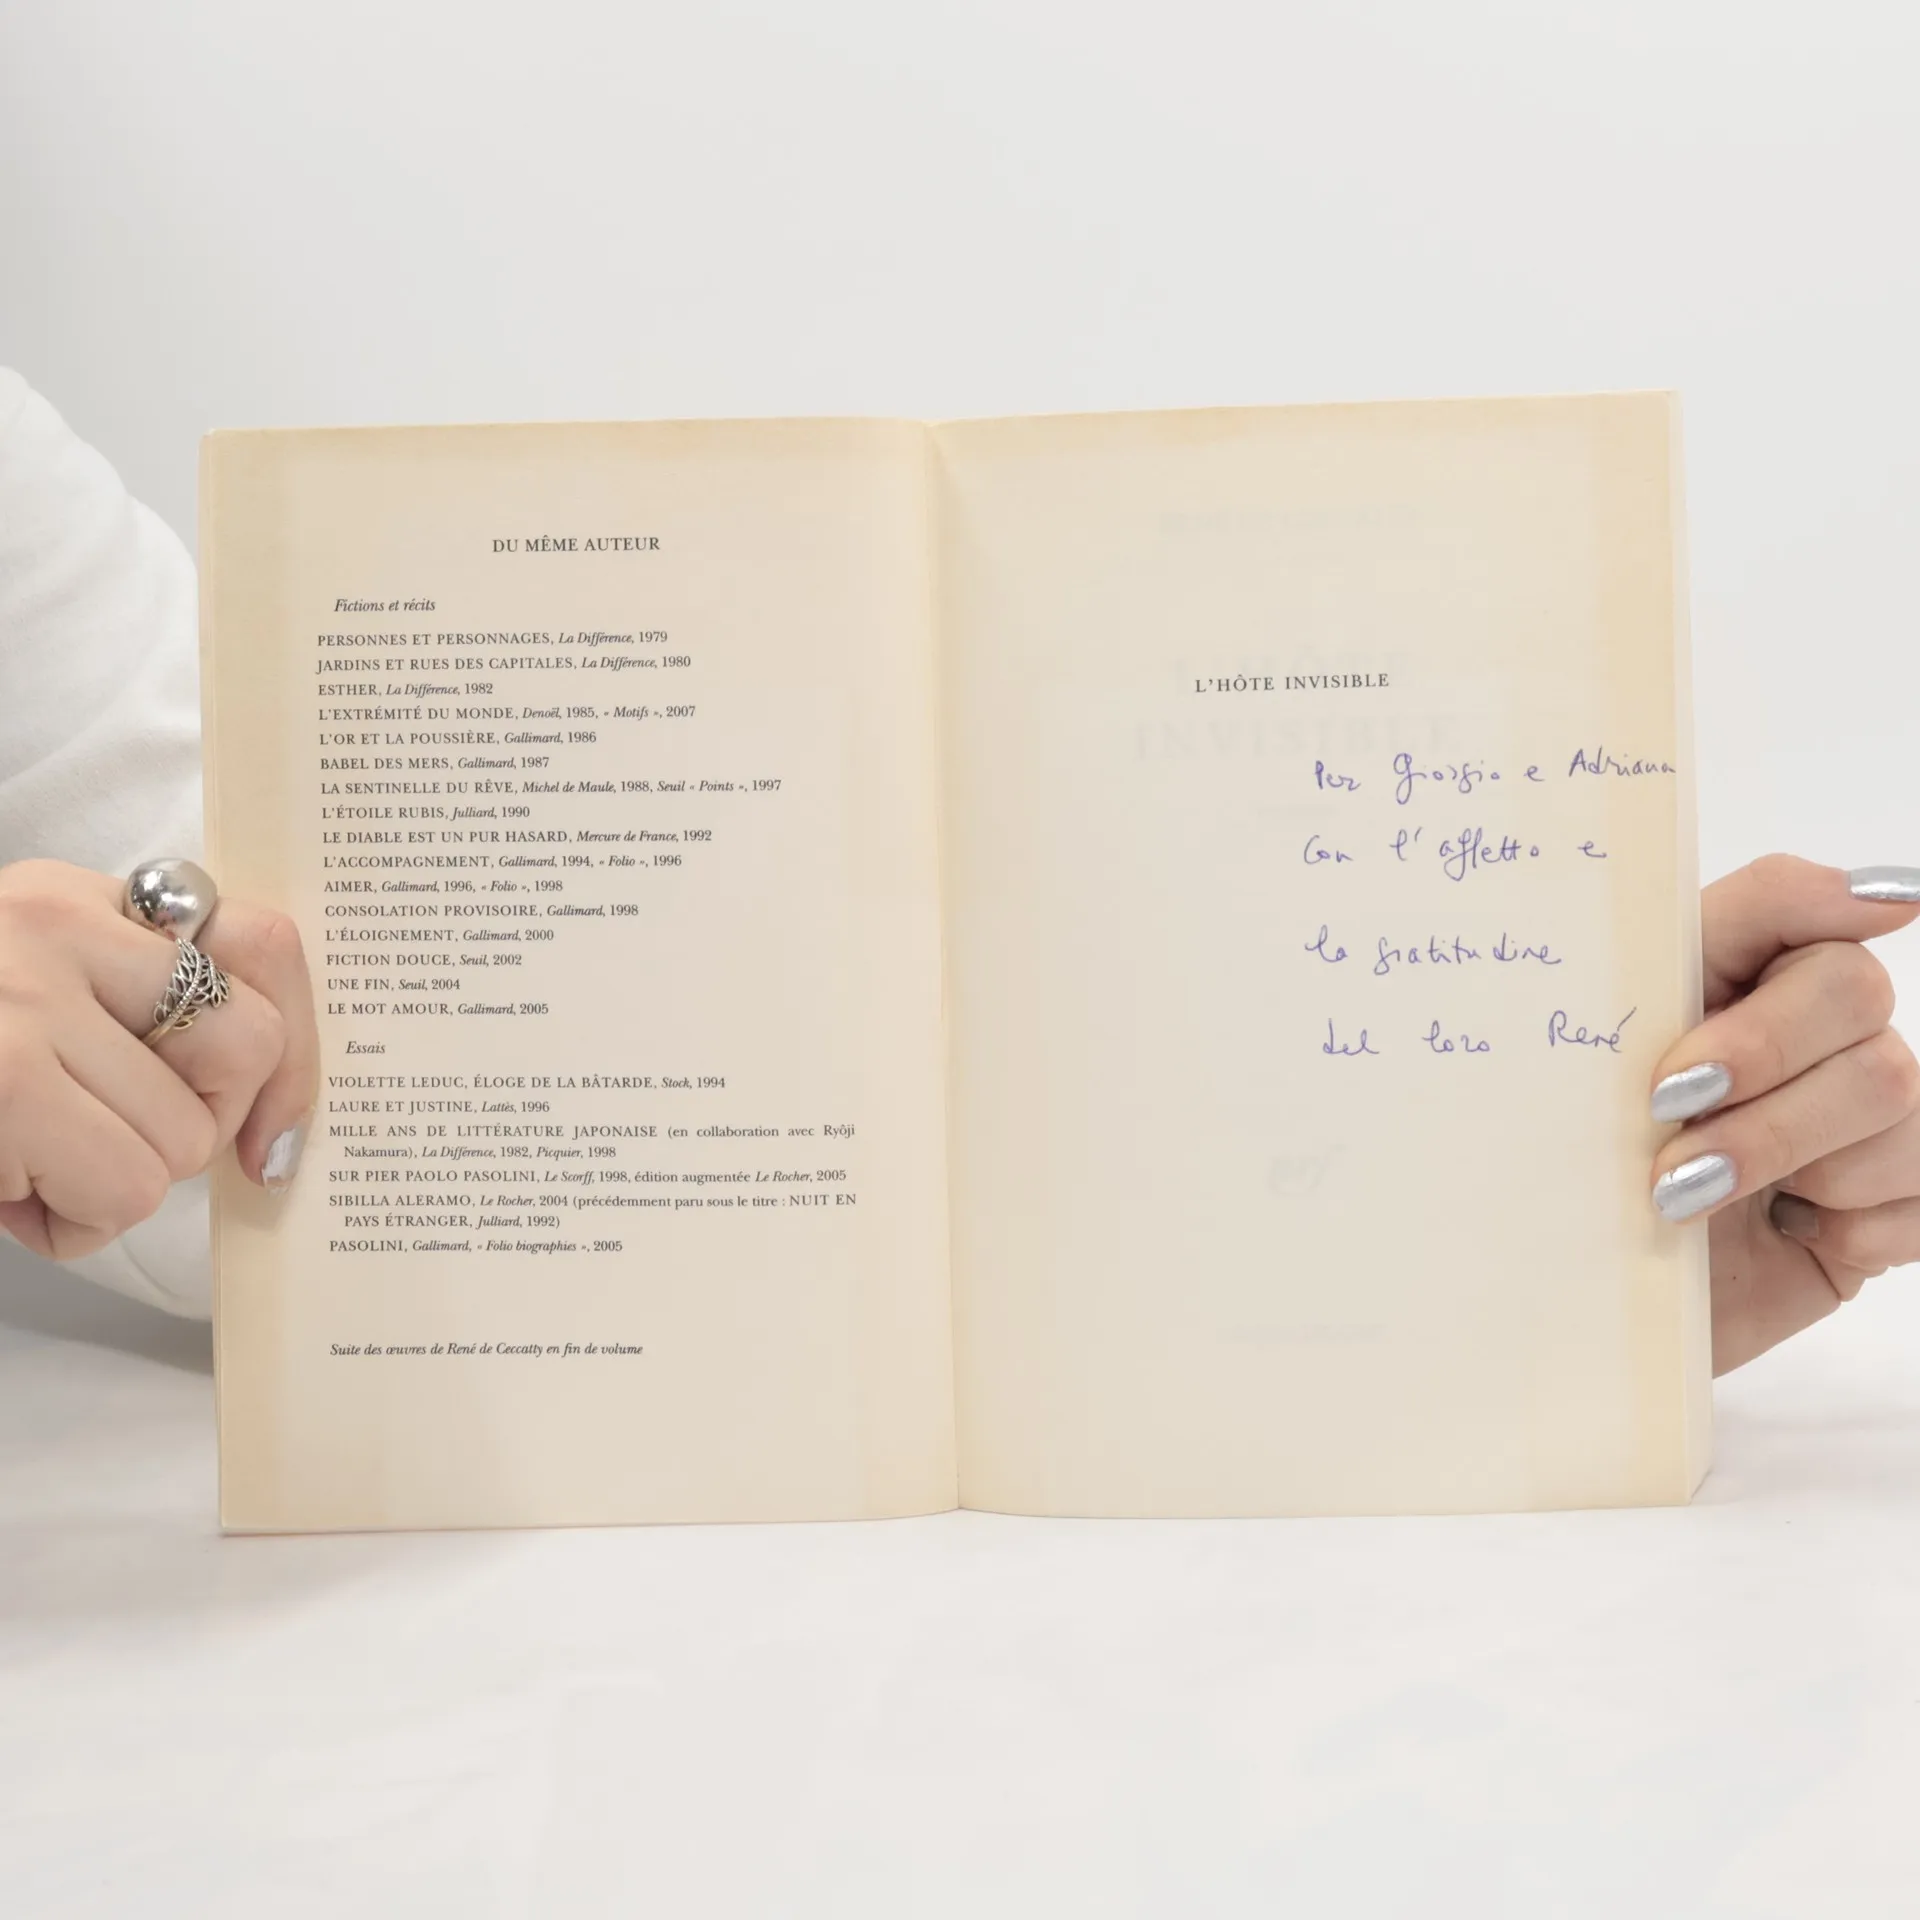 DU MÊME AUTEUR
Fictions et récits
PERSONNES ET PERSONNAGES, La Différence, 1979
JARDINS ET RUES DES CAPITALES, La Différence, 1980
ESTHER, La Différence, 1982
L'EXTRÉMITÉ DU MONDE, Denoël, 1985, « Motifs », 2007
L'OR ET LA POUSSIÈRE, Gallimard, 1986
BABEL DES MERS, Gallimard, 1987
LA SENTINELLE DU RÊVE, Michel de Maule, 1988, Seuil « Points », 1997
L'ÉTOILE RUBIS, Julliard, 1990
LE DIABLE EST UN PUR HASARD, Mercure de France, 1992
L'ACCOMPAGNEMENT, Gallimard, 1994, « Folio », 1996
AIMER, Gallimard, 1996, « Folio », 1998
CONSOLATION PROVISOIRE, Gallimard, 1998
L'ÉLOIGNEMENT, Gallimard, 2000
FICTION DOUCE, Seuil, 2002
UNE FIN, Seuil, 2004
LE MOT AMOUR, Gallimard, 2005
Essais
VIOLETTE LEDUC, ÉLOGE DE LA BÂTARDE, Stock, 1994
LAURE ET JUSTINE, Lattès, 1996
MILLE ANS DE LITTÉRATURE JAPONAISE (en collaboration avec Ryôji
Nakamura), La Différence, 1982, Picquier, 1998
SUR PIER PAOLO PASOLINI, Le Scorff, 1998, édition augmentée Le Rocher, 2005
SIBILLA ALERAMO, Le Rocher, 2004 (précédemment paru sous le titre : NUIT EN
PAYS ÉTRANGER, Julliard, 1992)
PASOLINI, Gallimard, « Folio biographies », 2005
Suite des œuvres de René de Ceccatty en fin de volume
L'HÔTE INVISIBLE
INVISIBLE
Per Giorgio e Adriana
Con l'affetto e
la gratitudine
del loro René